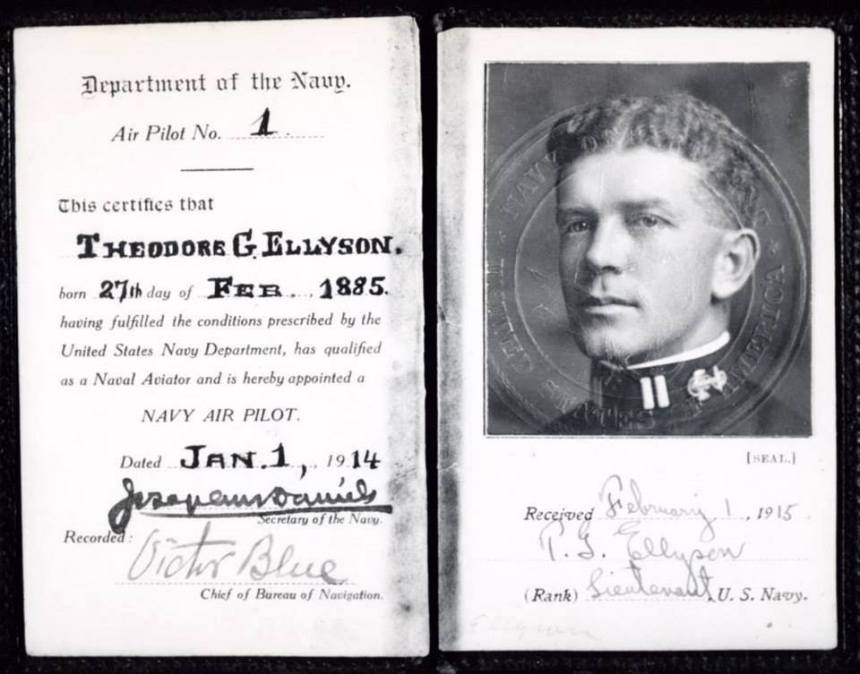 Department of the Navy.
Air Pilot No. 1
This certifies that
THEODORE G. ELLYSON.
born 27th day of FEB., 1885.
having fulfilled the conditions prescribed by the
United States Navy Department, has qualified
as a Naval Aviator and is hereby appointed a
NAVY AIR PILOT.
Dated JAN. 1, 1914
Josephus Daniels
Secretary of the Navy.
Recorded:
Victor Blue
Chief of Bureau of Navigation.
NAVY UNITED STATES AMERICA
[SEAL.]
Received February 1, 1915
T. G. Ellyson
(Rank) Lieutenant, U. S. Navy.
Ellyson